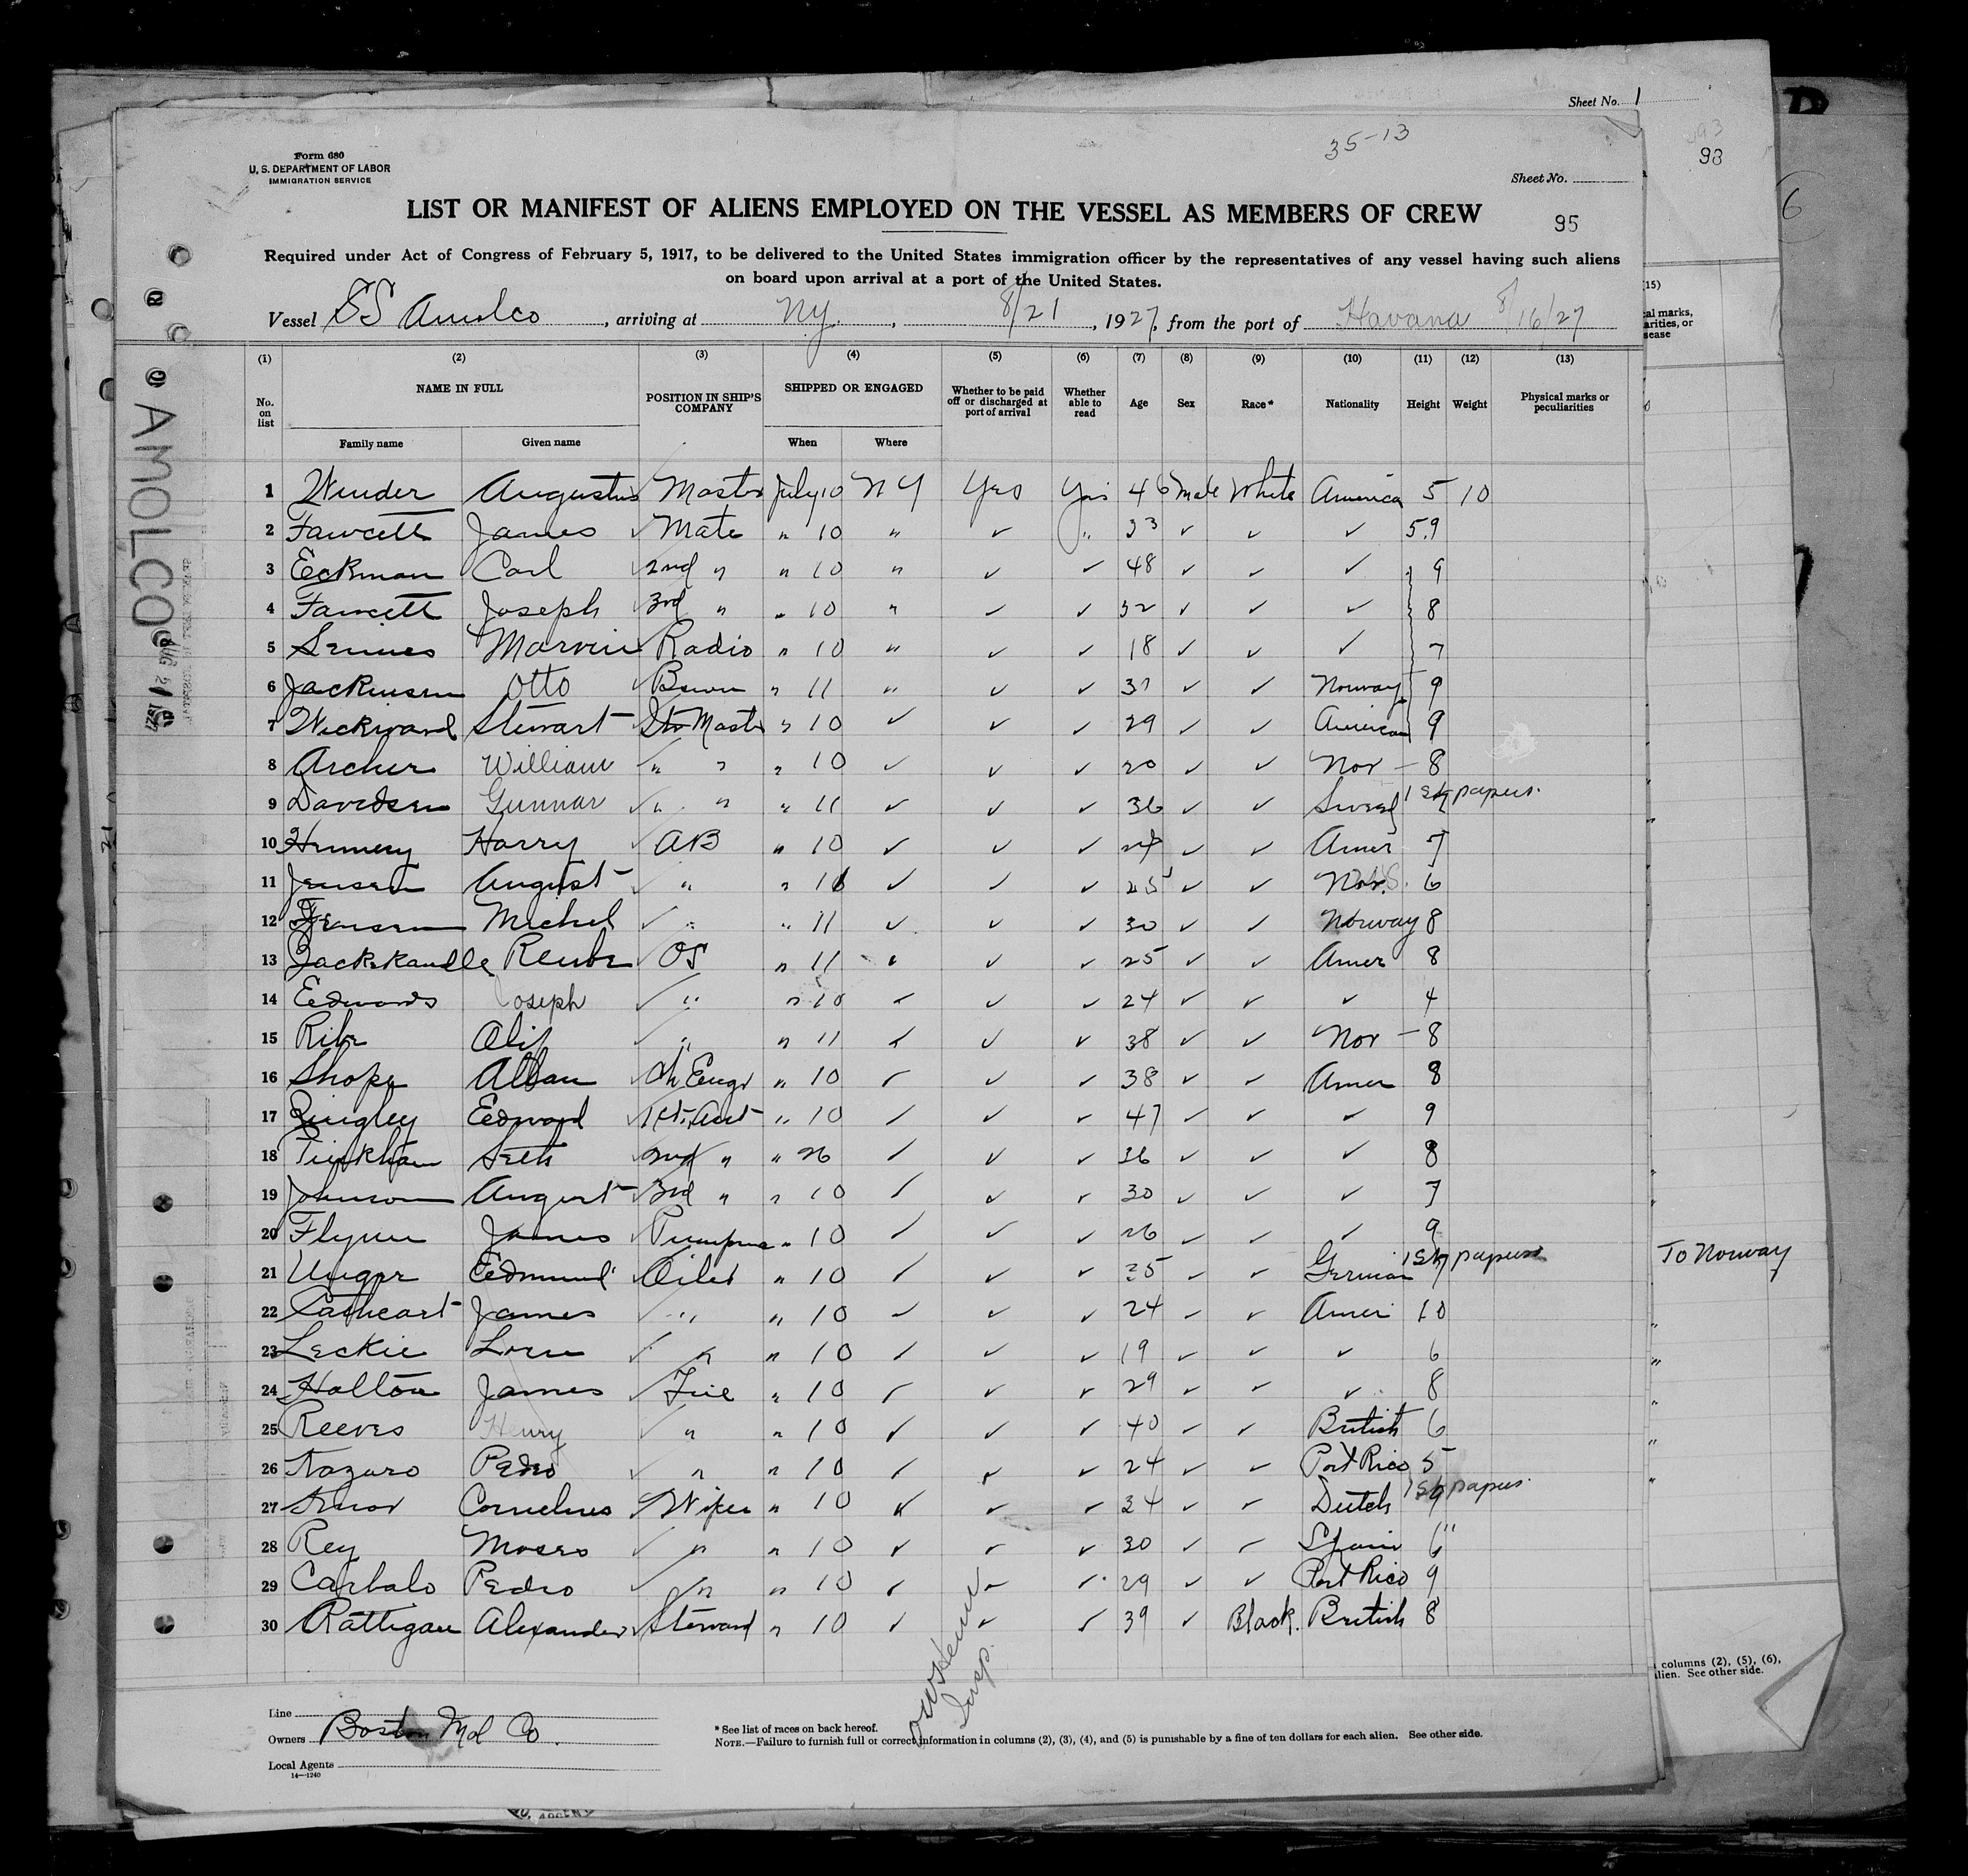 Sheet No. 1
35-13
93
98
Form 680
U. S. DEPARTMENT OF LABOR
IMMIGRATION SERVICE
Sheet No.
LIST OR MANIFEST OF ALIENS EMPLOYED ON THE VESSEL AS MEMBERS OF CREW
95
Required under Act of Congress of February 5, 1917, to be delivered to the United States immigration officer by the representatives of any vessel having such aliens
on board upon arrival at a port of the United States.
Vessel SS Amolco, arriving at NY, 8/21, 1927, from the port of Havana 8/16/27
(1) (2) (3) (4) (5) (6) (7) (8) (9) (10) (11) (12) (13)
No. on list NAME IN FULL POSITION IN SHIP'S COMPANY SHIPPED OR ENGAGED Whether to be paid off or discharged at port of arrival Whether able to read Age Sex Race* Nationality Height Weight Physical marks or peculiarities
Family name Given name When Where
1 Winder Augustus Master July 10 NY Yes Yes 46 Male White America 5 10
2 Fawcett James ✓ Mate " 10 " ✓ " 33 ✓ ✓ ✓ 5.9
3 Eckman Carl ✓ 2nd " " 10 " ✓ ✓ 48 ✓ ✓ ✓ 9
4 Fawcett Joseph ✓ 3rd " " 10 " ✓ ✓ 32 ✓ ✓ ✓ 8
5 Marvin ✓ Radio " 10 " ✓ ✓ 18 ✓ ✓ ✓ 7
6 Otto ✓ " 11 " ✓ ✓ 37 ✓ ✓ Norway 9
7 Stewart " 10 ✓ ✓ ✓ 29 ✓ ✓ American 9
8 Archer William ✓ " " " 10 ✓ ✓ ✓ 20 ✓ ✓ Nor — 8
9 Davidsen Gunnar ✓ " " " 11 ✓ ✓ ✓ 36 ✓ ✓ Swed 1st papers.
10 Harry ✓ AB " 10 ✓ ✓ ✓ ✓ ✓ Amer 7
11 Jensen August ✓ " " ✓ ✓ ✓ 25 ✓ ✓ 6
12 Michel ✓ " " 11 ✓ ✓ ✓ 30 ✓ ✓ Norway 8
13 OS " 11 ✓ ✓ ✓ 25 ✓ ✓ Amer 8
14 Eedwards Joseph ✓ " " 10 ✓ ✓ ✓ 24 ✓ ✓ ✓ 4
15 ✓ " " 11 ✓ ✓ ✓ 38 ✓ ✓ Nor — 8
16 Shope Alban ✓ Ch Engr " 10 ✓ ✓ ✓ 38 ✓ ✓ Amer 8
17 Eedward ✓ 1st. Asst " 10 ✓ ✓ ✓ 47 ✓ ✓ ✓ 9
18 Pinkham Seth ✓ 2nd " " 26 ✓ ✓ ✓ 36 ✓ ✓ ✓ 8
19 Johnson August ✓ 3rd " " 10 ✓ ✓ ✓ 30 ✓ ✓ ✓ 7
20 Flynn James ✓ " 10 ✓ ✓ ✓ 26 ✓ ✓ ✓ 9
21 Unger Eedmund ✓ Oiler " 10 ✓ ✓ ✓ 35 ✓ ✓ German 1st papers 7
To Norway
22 Cathcart James ✓ " " 10 ✓ ✓ ✓ 24 ✓ ✓ Amer 10
23 Leckie ✓ " " 10 ✓ ✓ ✓ 19 ✓ ✓ ✓ 6
24 Halton James ✓ Fire " 10 ✓ ✓ ✓ 29 ✓ ✓ ✓ 8
25 Reeves Henry ✓ " " 10 ✓ ✓ ✓ 40 ✓ ✓ British 6
26 Nazaro Pedro ✓ " " 10 ✓ ✓ ✓ 24 ✓ ✓ Port Rico 5
27 Cornelius ✓ Wiper " 10 ✓ ✓ ✓ 34 ✓ ✓ Dutch 1st papers. 9
28 Rey Moses ✓ " " 10 ✓ ✓ ✓ 30 ✓ ✓ Spain 6"
29 Carbalo Pedro ✓ " " 10 ✓ ✓ ✓ 29 ✓ ✓ Port Rico 9
30 Rattigan Alexander ✓ Steward " 10 ✓ ✓ ✓ 39 ✓ Black. British 8
Insp.
Line
Owners Boston Mol Co.
Local Agents
14—1240
* See list of races on back hereof.
NOTE.—Failure to furnish full or correct information in columns (2), (3), (4), and (5) is punishable by a fine of ten dollars for each alien. See other side.
AMOLCO
AUG 21 1927
(15)
cal marks,
arities, or
sease
columns (2), (5), (6),
alien. See other side.
D
6